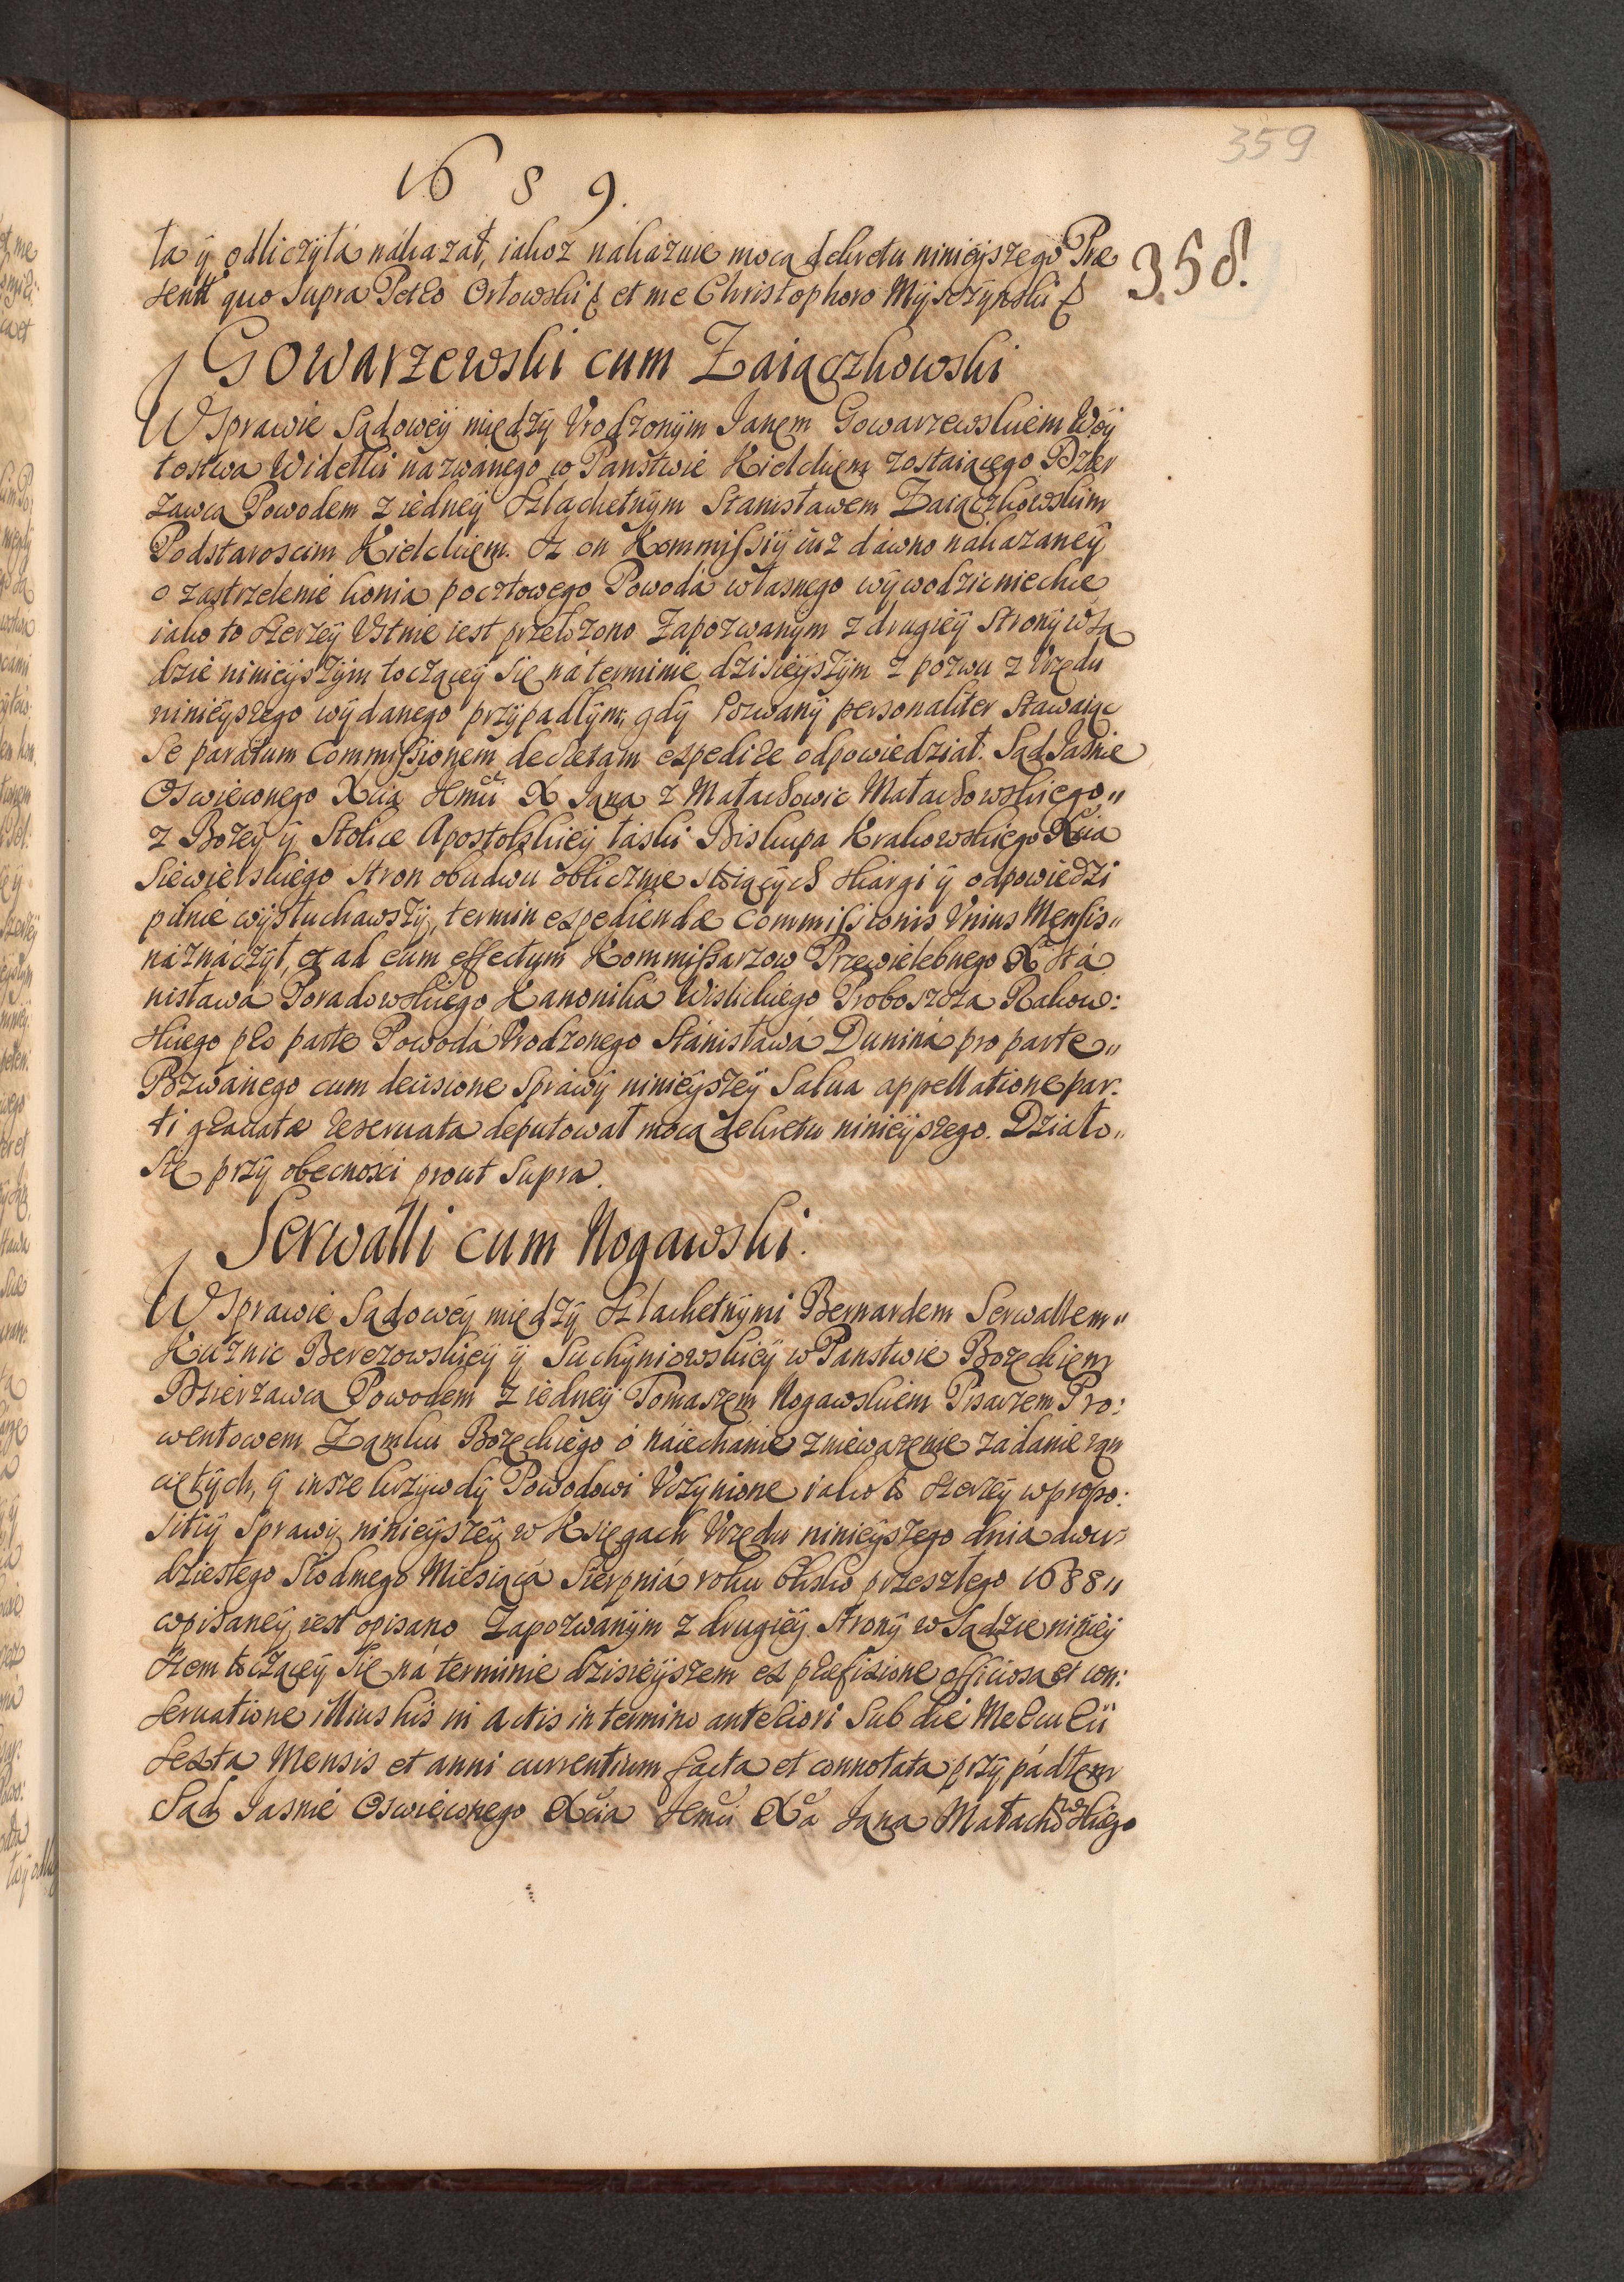 359
1689.
358.
ta ÿ odliczyła nakazał, iakoz nakazuie mocą dekretu ninieÿszego Præ
sentt quo Supra Petro Orłowski et me Christophoro Mÿsczÿnski
Gowarzewski cum Zaiączkowski
W Sprawie Sądoweÿ międzÿ Vrodzonÿm Ianem Gowarzewskiem Woÿ
tostwa Widełki nazwanego w Panstwie Kieleckiem zostaiącego Dzier
zawcą Powodem z iedneÿ Szlachetnÿm Stanisławem Zaiączkowskim
Podstaroscim Kieleckiem. Iz on Kommissiÿ iuz dawno nakazaneÿ
o zastrzelenie konia pocztowego Powoda własnego wÿwodzic niechce
iako to szerzeÿ Vstnie iest przełozono Zapozwanÿm z drugieÿ Stronÿ w Są
dzie ninieÿszÿm toczącęÿ Się na terminie dzisieÿszÿm z pozwu z Vrzędu
ninieÿszego wÿdanego przÿpadłÿm, gdÿ Pozwanÿ personaliter Stawaiąc
Se paratum Commissionem decretam expedire odpowiedział. Sąd Iasnie
Oswieconego Xcia Jmci X Iana z Małachowic Małachowskiego„
z Bozeÿ ÿ Stolice Apostolskieÿ łaski Biskupa Krakowskiego Xcia
Siewierskiego Stron obudwu oblicznie stoiącÿch skargi ÿ odpowiedzi
pilnie wÿsłuchawszÿ, termin expediendæ Commissionis Vnius Mensis„
naznaczÿł, et ad eum effectum Kommissarzow Przewielebnego X Sta
nisława Poradowskiego Kanonika Wislickiego Proboszcza Rakow:
skiego pro parte Powoda Vrodzonego Stanisława Dunina pro parte„
Pozwanego cum decisione Sprawÿ ninieÿszeÿ Salua appellatione par:
ti grauatæ reseruata deputował mocą dekretu ninieÿszego. Działo„
Się przÿ obecnosci prout Supra.
Serwatti cum Nogawski.
W Sprawie Sądoweÿ międzÿ Szlachetnÿmi Bernardem Serwattem„
Kuznic Berezowskieÿ ÿ Suchÿniowskieÿ w Panstwie Bozęckiem
Dzierzawcą Powodem z iedneÿ Tomaszem Nogawskiem Pisarzem Pro:
wentowem Zamku Bozęckiego o naiechanie zniewazenie zadanie ran
ciętÿch, ÿ insze krzÿwdÿ Powodowi Vczÿnione iako to szerzeÿ w propo:
sitiÿ Sprawÿ ninieÿszeÿ w Księgach Vrzędu ninieÿszego dnia dwu„
dziestego Siodmego Miesiąca Sierpnia roku blisko przeszłego 1688„
wpisaneÿ iest opisano Zapozwanÿm z drugieÿ Stronÿ w Sądzie ninieÿ
szem toczącęÿ Się na terminie dzisieÿszem ex præfixione officiosa et con:
seruatione illius his in Actis in termino anteriori Sub die Mercurii
Sexta Mensis et anni currentium facta et connotata przÿpadłem
Sąd Iasnie Oswieconego Xcia Jmci Xa Iana Małachowskiego